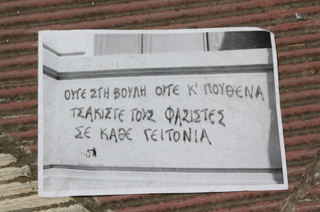 ΟΥΤΕ ΣΤΗ ΒΟΥΛΗ ΟΥΤΕ Κ' ΠΟΥΘΕΝΑ
ΤΣΑΚΙΣΤΕ ΤΟΥΣ ΦΑΣΙΣΤΕΣ
ΣΕ ΚΑΘΕ ΓΕΙΤΟΝΙΑ